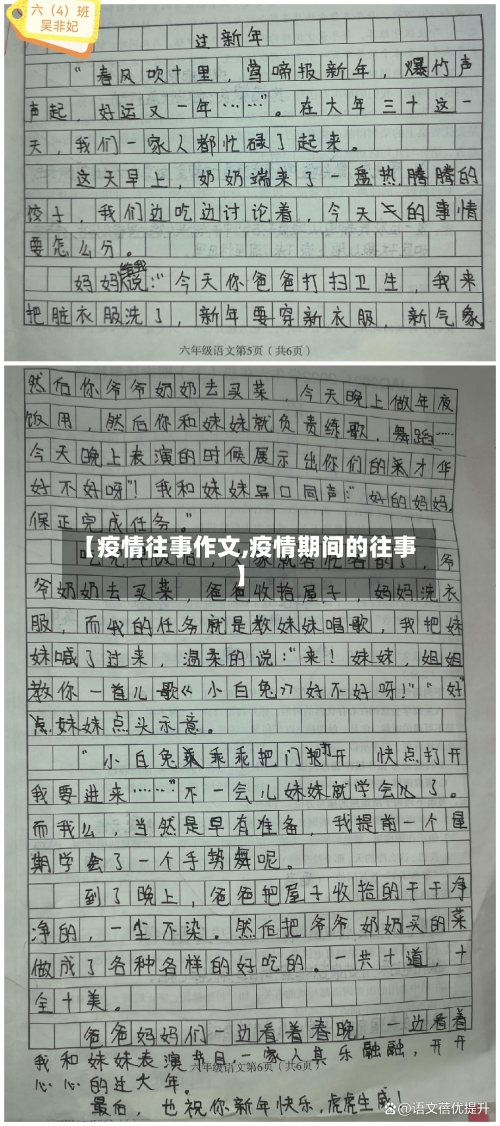 六（4）班
吴非妃
过新年
“春风吹十里，莺啼报新年，爆竹声
声起，好运又一年……”。在大年三十这一
天，我们一家人都忙碌了起来。
这天早上，奶奶端来了一盘热腾腾的
饺子，我们边吃边讨论着，今天的事情
要怎么分。
妈妈说：“今天你爸爸打扫卫生，我来
把脏衣服洗了，新年要穿新衣服，新气象，
六年级语文第5页（共6页）
然后你爷爷奶奶去买菜，今天晚上做年夜
饭用，然后你和妹妹就负责练歌，舞蹈……
今天晚上表演的时候展示出你们的才华
好不好呀”！我和妹妹异口同声：“好的妈妈，
保正完成任务。”
【疫情往事作文,疫情期间的往事
】
爷奶奶去买菜，爸爸收拾屋子，妈妈洗衣
服，而我的任务就是教妹妹唱歌，我把妹
妹喊了过来，温柔的说：“来！妹妹，姐姐
教你一首儿歌《小白兔》好不好呀！”“好”
妹妹点头示意。
“小白兔乖乖把门打开，快点打开
我要进来……”不一会儿妹妹就学会了。
而我么，当然是早有准备，我提前一个星
期学会了一个手势舞呢。
到了晚上，爸爸把屋子收拾的干干净
净的，一尘不染。然后把爷爷奶奶买的菜
做成了各种各样的好吃的。一共十道，十
全十美。
爸爸妈妈们一边看着春晚，一边看着
我和妹妹表演节目，一家人其乐融融，开开
六年级语文第6页（共6页）
心心的过大年。
最后，也祝你新年快乐，虎虎生威！
@语文蓓优提升